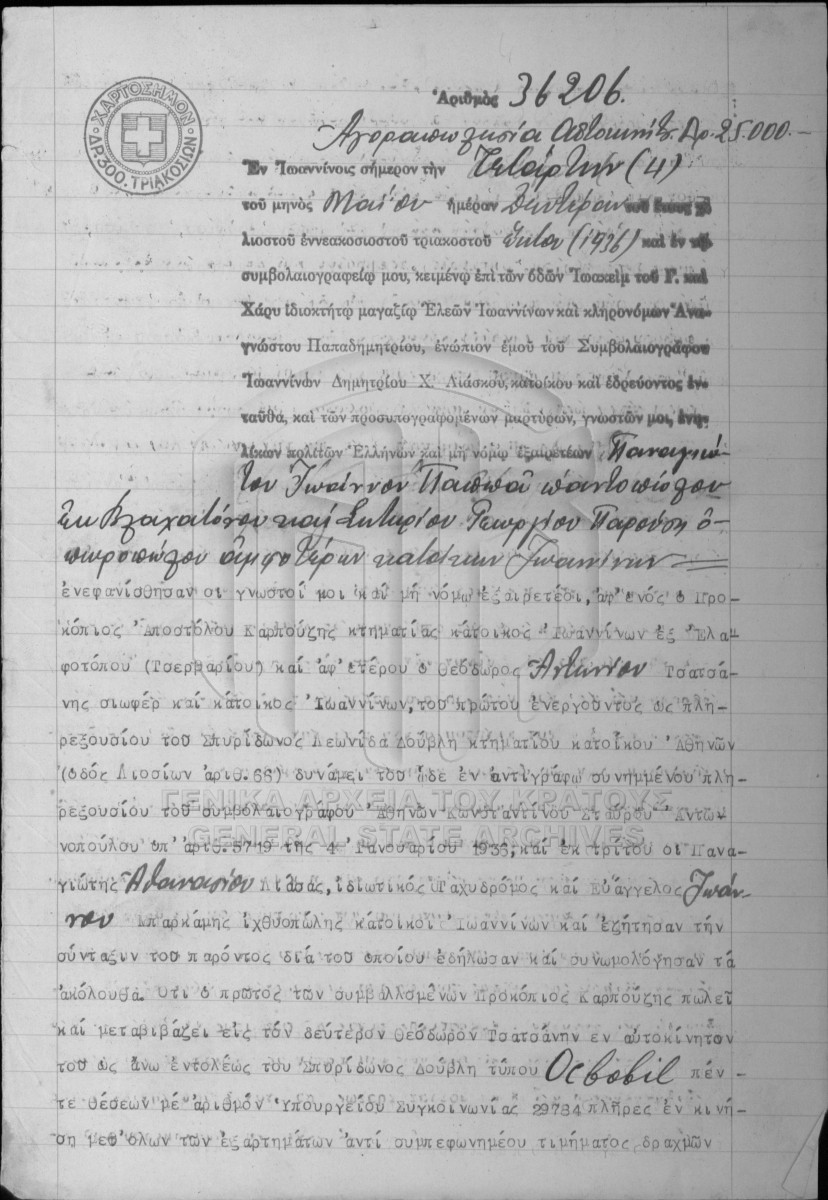 ΧΑΡΤΟΣΗΜΟΝ
ΔΡ. 300. ΤΡΙΑΚΟΣΙΩΝ
Ἀριθμὸς 36206.
Αγοραπωλησία Αὐτοκινήτ. Δρ. 25.000.—
Ἐν Ἰωαννίνοις σήμερον τὴν Τετάρτην (4)
τοῦ μηνὸς Μαΐου ἡμέραν Δευτέραν τοῦ ἔτους χι
λιοστοῦ ἐννεακοσιοστοῦ τριακοστοῦ ἕκτου (1936) καὶ ἐν τῷ
συμβολαιογραφείῳ μου, κειμένῳ ἐπὶ τῶν ὁδῶν Ἰωακεὶμ τοῦ Γ. καὶ
Χάρυ ἰδιοκτήτῳ μαγαζίῳ Ἐλεῶν Ἰωαννίνων καὶ κληρονόμων Ἀνα-
γνώστου Παπαδημητρίου, ἐνώπιον ἐμοῦ τοῦ Συμβολαιογράφου
Ἰωαννίνων Δημητρίου Χ. Λιάσκου, κατοίκου καὶ ἑδρεύοντος ἐν-
ταῦθα, καὶ τῶν προσυπογραφομένων μαρτύρων, γνωστῶν μοι, ἐνη-
λίκων πολιτῶν Ἑλλήνων καὶ μὴ νόμῳ ἐξαιρετέων, Παναγιώ-
του Ἰωάννου Παππᾶ παντοπώλου
ἐκ Βλαχατάνου καὶ Σωτηρίου Γεωργίου Παρούση ὀ-
πωροπώλου ἀμφοτέρων κατοίκων Ἰωαννίνων
ἐνεφανίσθησαν οι γνωστοί μοι καί μή νόμῳ ἐξαιρετέοι, ἀφ'ενός ο Προ-
κόπιος Ἀποστόλου Καρπούζης κτηματίας κάτοικος Ἰωαννίνων ἐξ Ἐλα-
φοτόπου (Τσερβαρίου) καί ἀφ'ετέρου ο Θεόδωρος Ἀντωνίου Τσατσά-
νης σιωφέρ καί κάτοικος Ἰωαννίνων, του πρώτου ενεργουντος ως πλη-
ρεξουσίου του Σπυρίδωνος Λεωνίδα Δούβλη κτηματίου κατοίκου Ἀθηνῶν
(οδός Λιοσίων ἀριθ. 66) δυνάμει του ὧδε ἐν ἀντιγράφῳ συνημμένου πλη-
ρεξουσίου του συμβολαιογράφου Ἀθηνῶν Κωνσταντίνου Σταύρου Ἀντω-
νοπούλου υπ'ἀριθ. 5719 τῆς 4 Ἰανουαρίου 1936, καί ἐκ τρίτου οι Πανα-
γιώτης Ἀθανασίου Λιάσας, ἰδιωτικός Ταχυδρόμος καί Εὐάγγελος Ἰωάν-
νου Μπαρκάμης ἰχθυοπώλης κάτοικοι Ἰωαννίνων καί ἐζήτησαν τήν
σύνταξιν του παρόντος διά του οποίου ἐδήλωσαν καί συνωμολόγησαν τά
ἀκόλουθα. Οτι ο πρῶτος τῶν συμβαλλομένων Προκόπιος Καρπούζης πωλεῖ
καί μεταβιβάζει εἰς τόν δεύτερον Θεόδωρον Τσατσάνην εν αὐτοκίνητον
του ως ἄνω ἐντολέως του Σπυρίδωνος Δούβλη τύπου Ocbobil πέν-
τε θέσεων μέ ἀριθμόν Υπουργείου Συγκοινωνίας 29784 πλῆρες ἐν κινή-
ση μεθ'ὅλων τῶν ἐξαρτημάτων ἀντί συμπεφωνημέου τιμήματος δραχμῶν
ΓΕΝΙΚΑ ΑΡΧΕΙΑ ΤΟΥ ΚΡΑΤΟΥΣ
GENERAL STATE ARCHIVES